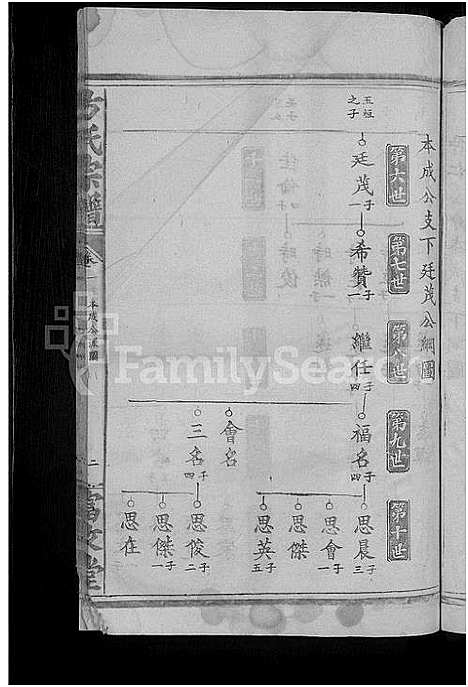 本成公支下廷茂公綱圖
第六世
第七世
第八世
第九世
第十世
玉垣
之子
廷茂 一子
希贊 一子
繼任 四子
福名 四子
會名
三名 四子
思晨 三子
思會 一子
思傑
思英 五子
思俊 二子
思傑 一子
思在
方氏宗譜
卷一
本成公派圖
二
富文堂
FamilySearch